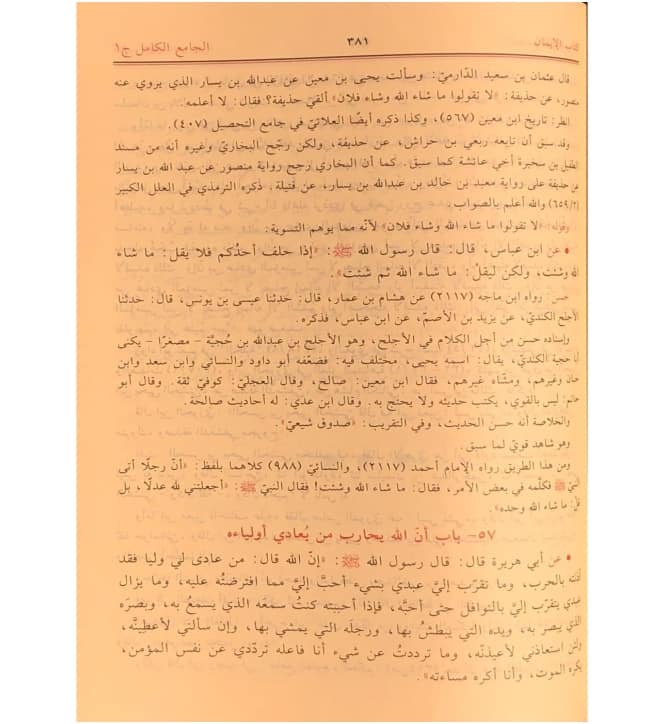 كتاب الإيمان ٣٨١ الجامع الكامل ج١
قال عثمان بن سعيد الدّارميّ: وسألت يحيى بن معين عن عبدالله بن يسار الذي يروي عنه
منصور، عن حذيفة: «لا تقولوا ما شاء الله وشاء فلان» ألقيَ حذيفة؟ فقال: لا أعلمه.
انظر: تاريخ ابن معين (٥٦٧)، وكذا ذكره أيضًا العلائيّ في جامع التحصيل (٤٠٧).
وقد سبق أن تابعه ربعي بن حراش، عن حذيفة، ولكن رجّح البخاريّ وغيره أنه من مسند
الطفيل بن سخبرة أخي عائشة كما سبق. كما أن البخاري رجح رواية منصور عن عبد الله بن يسار
عن حذيفة على رواية معبد بن خالد بن عبدالله بن يسار، عن قتيلة. ذكره الترمذي في العلل الكبير
(٦٥٩/٢) والله أعلم بالصواب.
وقوله: «لا تقولوا ما شاء الله وشاء فلان» لأنّه مما يوهم التسوية.
• عن ابن عباس، قال: قال رسول الله ﷺ: «إذا حلف أحدُكم فلا يقل: ما شاء
الله وشئت، ولكن ليقلْ: ما شاء الله ثم شئتَ».
حسن: رواه ابن ماجه (٢١١٧) عن هشام بن عمار، قال: حدثنا عيسى بن يونس، قال: حدثنا
الأجلح الكنديّ، عن يزيد بن الأصمّ، عن ابن عباس، فذكره.
وإسناده حسن من أجل الكلام في الأجلح، وهو الأجلح بن عبدالله بن حُجيَّة - مصغرًا - يكنى
أبا حجية الكنديّ، يقال: اسمه يحيى، مختلف فيه: فضعّفه أبو داود والنسائي وابن سعد وابن
حبان وغيرهم، ومشّاه غيرهم، فقال ابن معين: صالح، وقال العجليّ: كوفيّ ثقة. وقال أبو
حاتم: ليس بالقوي، يكتب حديثه ولا يحتج به. وقال ابن عدي: له أحاديث صالحة.
والخلاصة أنه حسنُ الحديث، وفي التقريب: «صدوق شيعيّ».
وهو شاهد قويّ لما سبق.
ومن هذا الطريق رواه الإمام أحمد (٢١١٧)، والنسائيّ (٩٨٨) كلاهما بلفظ: «أنّ رجلًا أتى
النبيّ ﷺ فكلّمه في بعض الأمر، فقال: ما شاء الله وشئت! فقال النبيّ ﷺ: «أجعلتني لله عدلًا، بل
قل: ما شاء الله وحده».
٥٧- باب أنّ الله يحارب من يُعادي أولياءه
• عن أبي هريرة قال: قال رسول الله ﷺ: «إنّ الله قال: من عادى لي وليا فقد
آذنته بالحرب، وما تقرّب إليَّ عبدي بشيء أحبَّ إليَّ مما افترضتُه عليه، وما يزال
عبدي يتقرب إليَّ بالنوافل حتى أحبَّه، فإذا أحببته كنتُ سمعَه الذي يسمعُ به، وبصرَه
الذي يبصر به، ويده التي يبطشُ بها، ورجلَه التي يمشي بها، وإن سألني لأعطِينَّه،
ولئن استعاذني لأعيذنَّه، وما ترددتُ عن شيء أنا فاعله تردّدي عن نفس المؤمن،
يكره الموت، وأنا أكره مساءته».